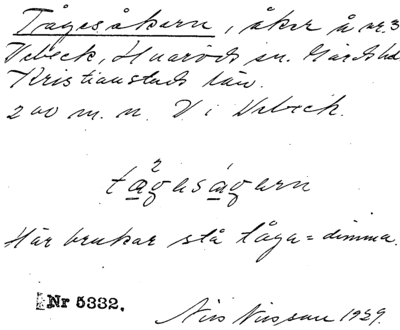 Tågesåkern, åker å nr. 3
Vebeck, Huaröds sn. Gärds hd.
Kristianstads län.
200 m. n. V i Vebeck.
tågasågern
Här brukar stå tåga = dimma.
Nr 5332.
Nils Nilsson 1929.